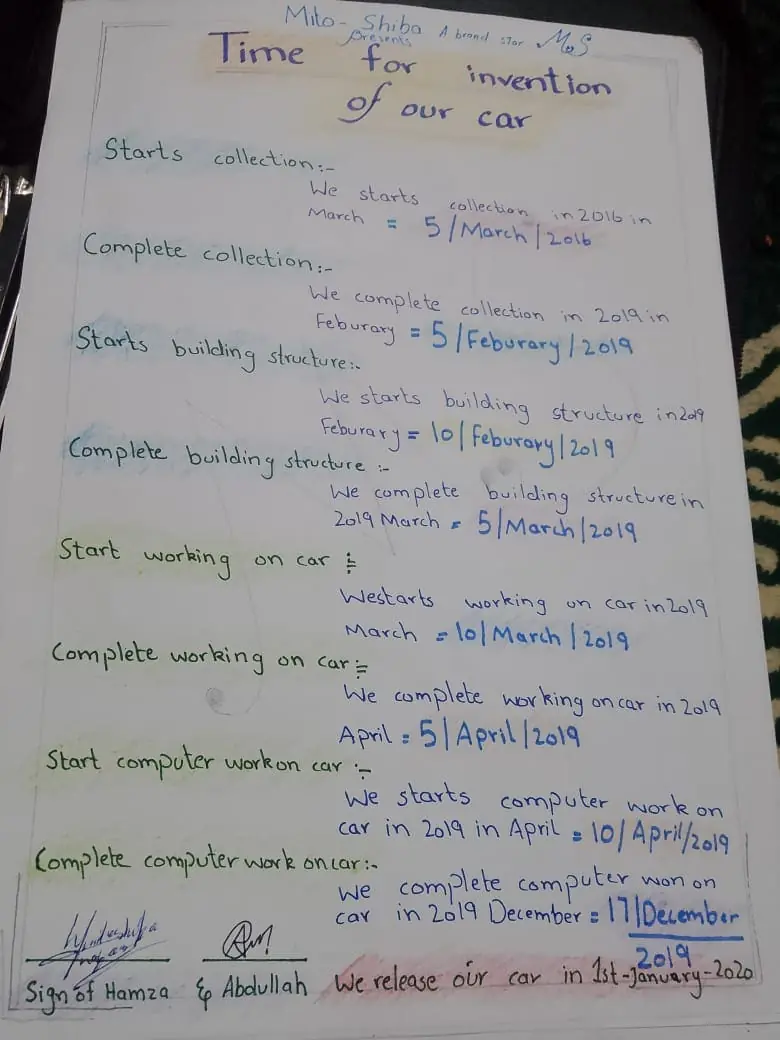 Mito-Shiba A brand star M&S
presents
Time for invention
of our car
Starts collection:-
We starts collection in 2016 in
March = 5/March/2016
Complete collection:-
We complete collection in 2019 in
Feburary = 5/Feburary/2019
Starts building structure:-
We starts building structure in 2019
Feburary = 10/Feburary/2019
Complete building structure:-
We complete building structure in
2019 March = 5/March/2019
Start working on car :-
We starts working on car in 2019
March = 10/March/2019
Complete working on car:-
We complete working on car in 2019
April = 5/April/2019
Start computer work on car :-
We starts computer work on
car in 2019 in April = 10/April/2019
Complete computer work on car:-
We complete computer won on
car in 2019 December = 17/December
2019
Sign of Hamza & Abdullah
We release our car in 1st-January-2020